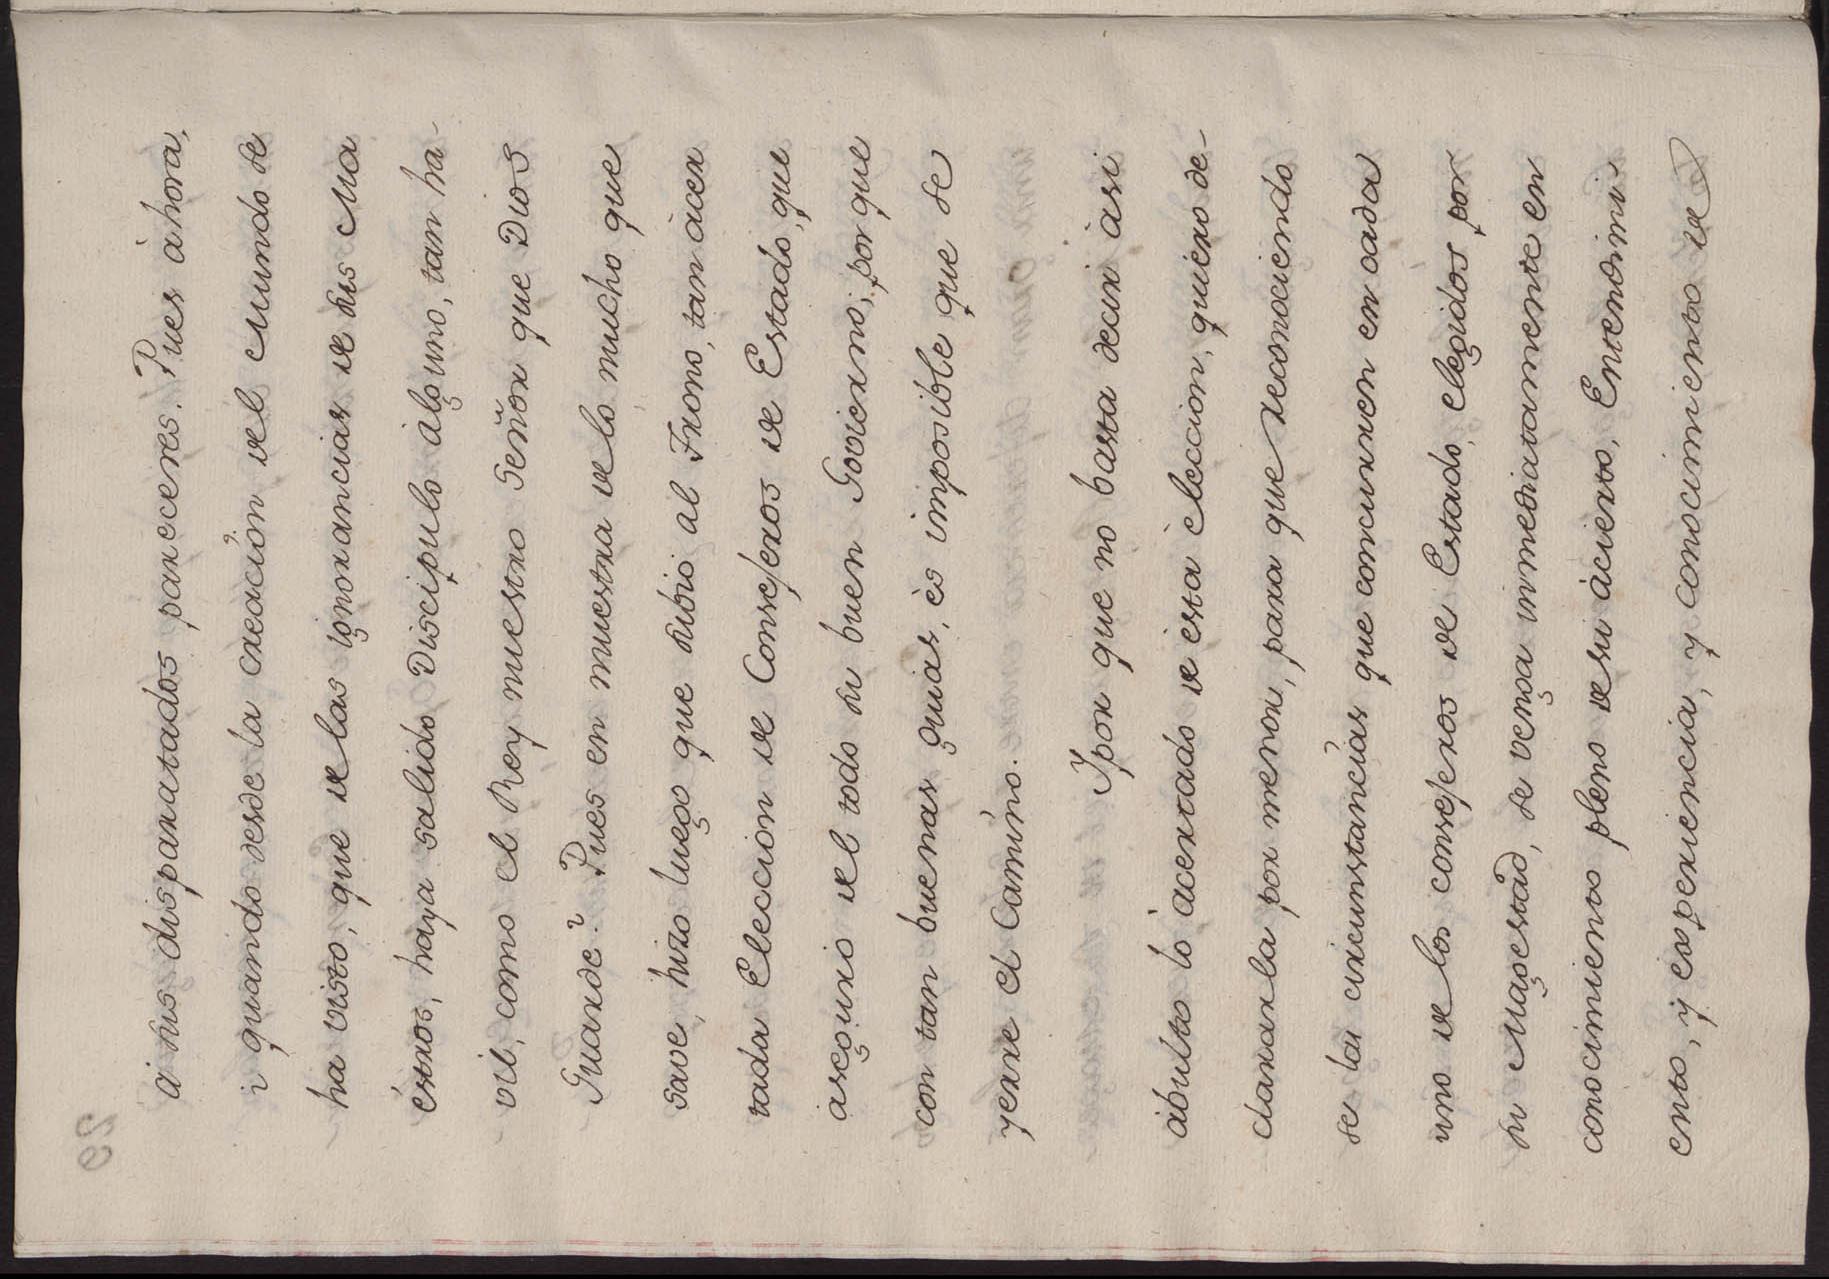 a sus disparatados pareceres. Pues àhora,
i quando desde la creación del Mundo se
ha visto, que de las ignorancias de sus Ma
éstros, haya salido Discipulo àlguno, tan ha-
vil, como el Rey nuestro Señor que Dios
Guarde? Pues en muestra de lo mucho que
save, hizo luego que subio al Trono, tan àcer
tada Eleccion de Consejeros de Estado, que
àseguro del todo su buen Govierno; por que
con tan buenas guias, ès imposible que se
yerre el Camino.
Y por que no basta decir àsi
àbulto lo àcertado de esta èleccion, quiero de-
clararla por menor, para que reconociendo
se las circunstancias que concurren en cada
uno de los consejeros de Estado, elegidos por
su Magestad, se venga inmediatamente en
conocimiento pleno de su àcierto, Entendimi-
ento, y experiencia, y conocimiento de
29